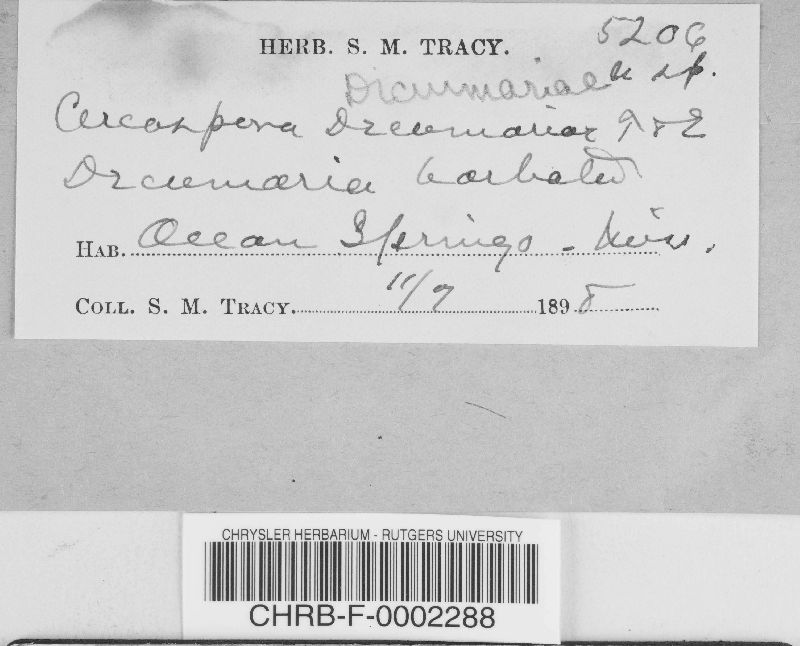 5206
HERB. S. M. TRACY.
Decumariae n sp.
Cercospora Decumariae T & E
Decumaria barbata
HAB. Ocean Springs - Miss.
COLL. S. M. TRACY. 11/7 1898
CHRYSLER HERBARIUM - RUTGERS UNIVERSITY
CHRB-F-0002288